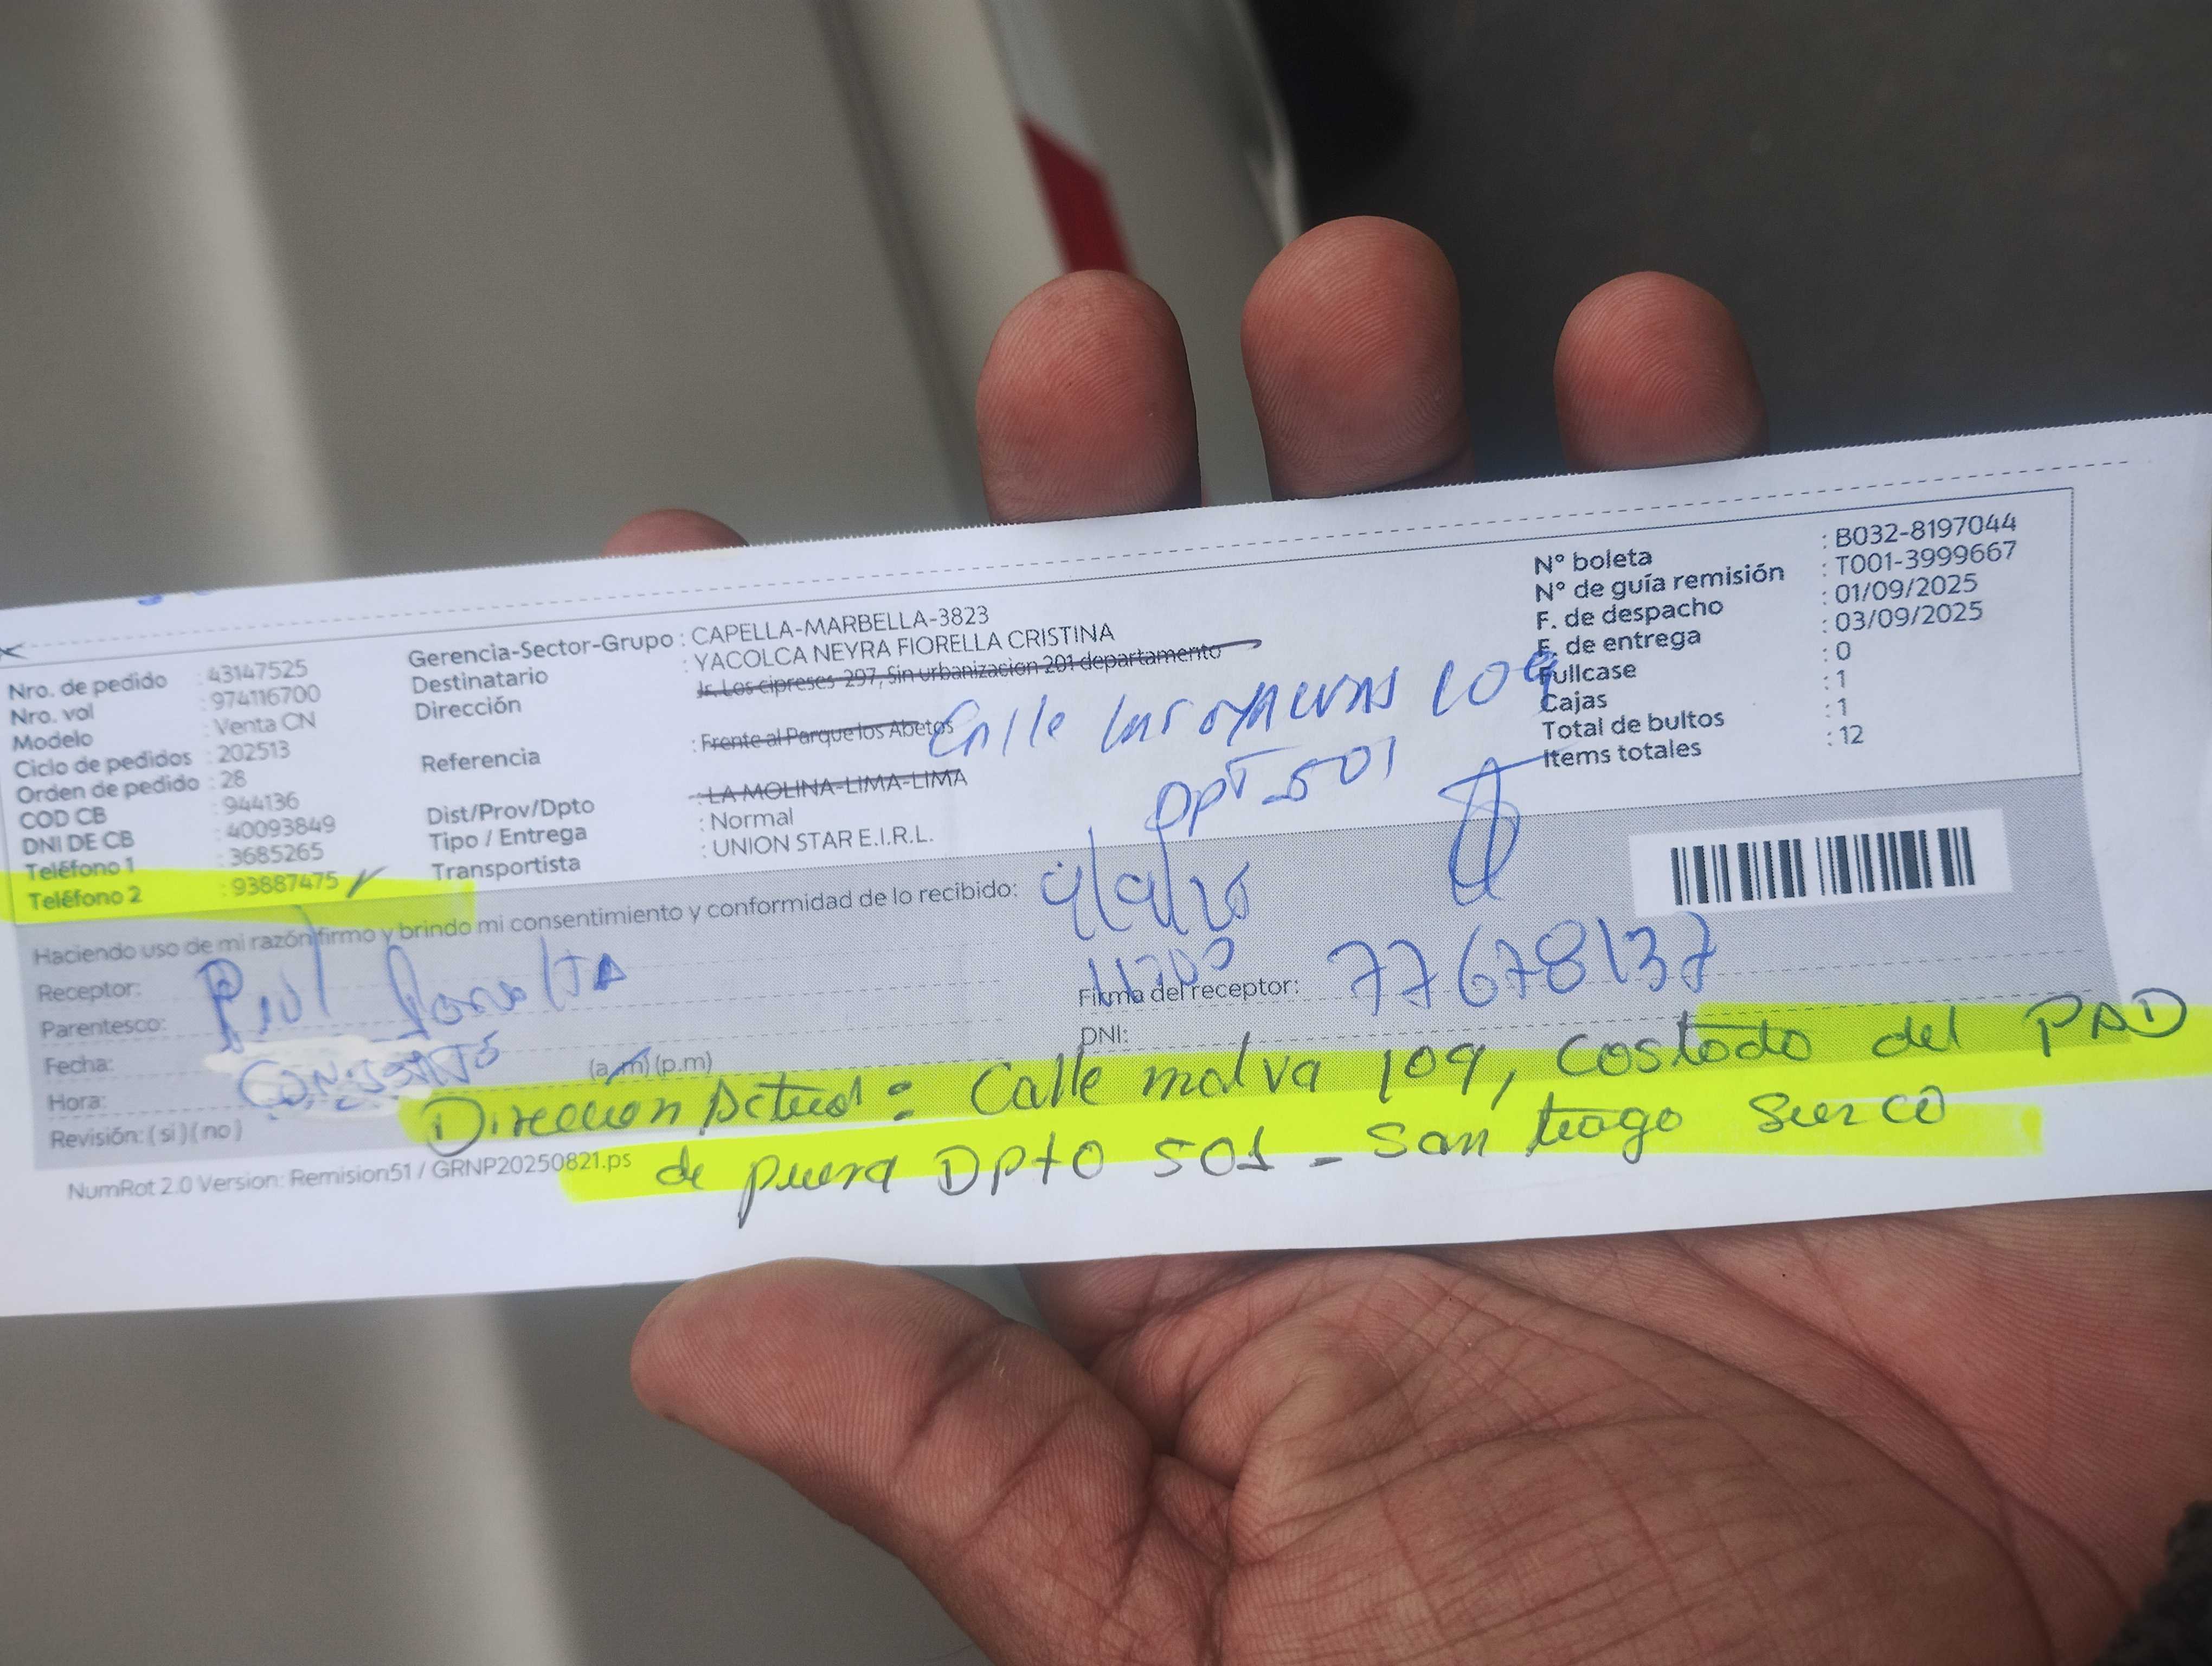 Nro. de pedido : 43147525
Nro. vol : 974116700
Modelo : Venta CN
Ciclo de pedidos : 202513
Orden de pedido : 28
COD CB : 944136
DNI DE CB : 40093849
Teléfono 1 : 3685265
Teléfono 2 : 93887475
Gerencia-Sector-Grupo : CAPELLA-MARBELLA-3823
Destinatario : YACOLCA NEYRA FIORELLA CRISTINA
Dirección : Jr. Los cipreses 297, Sin urbanizacion 201 departamento
Referencia : Frente al Parque los Abetos
Dist/Prov/Dpto : LA MOLINA-LIMA-LIMA
Tipo / Entrega : Normal
Transportista : UNION STAR E.I.R.L.
Calle Las 109
DPT 501
N° boleta : B032-8197044
N° de guía remisión : T001-3999667
F. de despacho : 01/09/2025
F. de entrega : 03/09/2025
Fullcase : 0
Cajas : 1
Total de bultos : 1
Items totales : 12
Haciendo uso de mi razón firmo y brindo mi consentimiento y conformidad de lo recibido:
Receptor:
Parentesco:
Fecha:
Hora: (a.m) (p.m)
Revisión: ( si ) ( no )
Firma del receptor: 77678137
DNI:
Direccion Actual: Calle malva 109, Costado del PAD
de piura DPtO 501 - San tiago Surco
NumRot 2.0 Version: Remision51 / GRNP20250821.ps